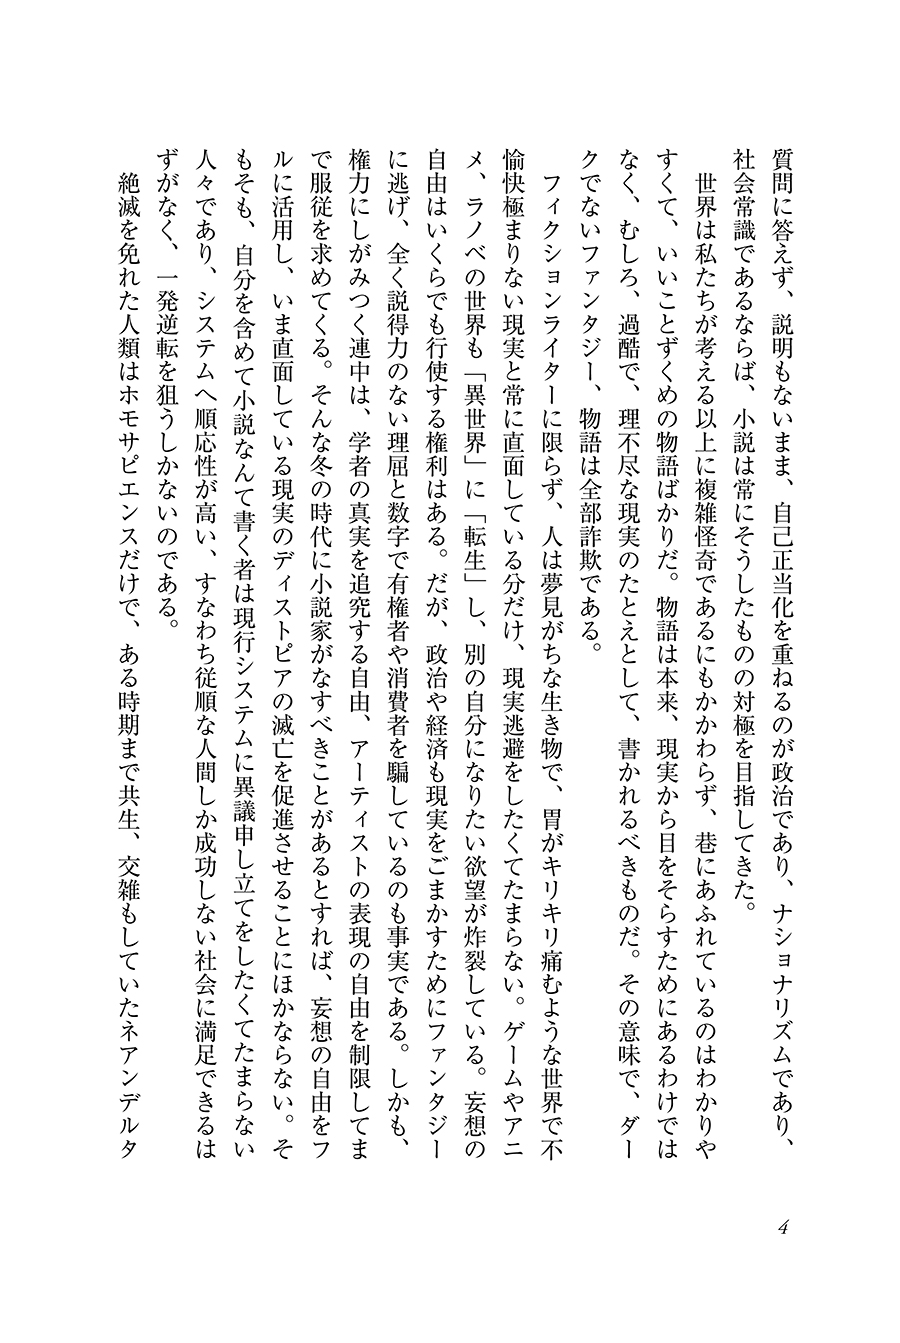 質問に答えず、説明もないまま、自己正当化を重ねるのが政治であり、ナショナリズムであり、
社会常識であるならば、小説は常にそうしたものの対極を目指してきた。
世界は私たちが考える以上に複雑怪奇であるにもかかわらず、巷にあふれているのはわかりや
すくて、いいことずくめの物語ばかりだ。物語は本来、現実から目をそらすためにあるわけでは
なく、むしろ、過酷で、理不尽な現実のたとえとして、書かれるべきものだ。その意味で、ダー
クでないファンタジー、物語は全部詐欺である。
フィクションライターに限らず、人は夢見がちな生き物で、胃がキリキリ痛むような世界で不
愉快極まりない現実と常に直面している分だけ、現実逃避をしたくてたまらない。ゲームやアニ
メ、ラノベの世界も「異世界」に「転生」し、別の自分になりたい欲望が炸裂している。妄想の
自由はいくらでも行使する権利はある。だが、政治や経済も現実をごまかすためにファンタジー
に逃げ、全く説得力のない理屈と数字で有権者や消費者を騙しているのも事実である。しかも、
権力にしがみつく連中は、学者の真実を追究する自由、アーティストの表現の自由を制限してま
で服従を求めてくる。そんな冬の時代に小説家がなすべきことがあるとすれば、妄想の自由をフ
ルに活用し、いま直面している現実のディストピアの滅亡を促進させることにほかならない。そ
もそも、自分を含めて小説なんて書く者は現行システムに異議申し立てをしたくてたまらない
人々であり、システムへ順応性が高い、すなわち従順な人間しか成功しない社会に満足できるは
ずがなく、一発逆転を狙うしかないのである。
絶滅を免れた人類はホモサピエンスだけで、ある時期まで共生、交雑もしていたネアンデルタ
4